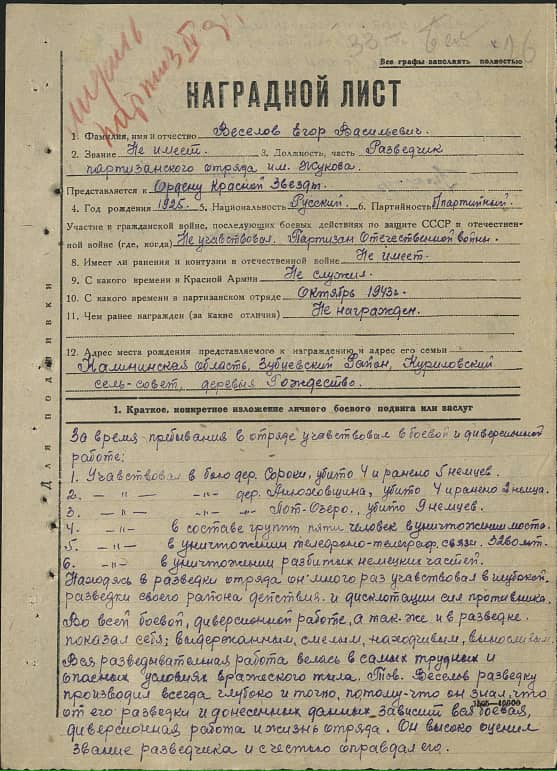 медаль
партиз II ст.
Все графы заполнять полностью
НАГРАДНОЙ ЛИСТ
1. Фамилия, имя и отчество Веселов Егор Васильевич.
2. Звание Не имеет. 3. Должность, часть Разведчик
партизанского отряда им. Жукова.
Представляется к Ордену Красной Звезды.
4. Год рождения 1925. 5. Национальность Русский. 6. Партийность Б/партийный.
Участие в гражданской войне, последующих боевых действиях по защите СССР и отечествен-
ной войне (где, когда) Не учавствовал. Партизан Отечественной войны.
8. Имеет ли ранения и контузии в отечественной войне Не имеет.
9. С какого времени в Красной Армии Не служил.
10. С какого времени в партизанском отряде Октябрь 1943г.
11. Чем ранее награжден (за какие отличия) Не награжден.
12. Адрес места рождения представляемого к награждению и адрес его семьи
Калининская область, Зубцевский Район, Куриловский
сель-совет, деревня Рождество.
Для подшивки
1. Краткое, конкретное изложение личного боевого подвига или заслуг
За время пребывания в отряде учавствовал в боевой и диверсионной
работе:
1. Учавствовал в бою дер. Сороки, убито 4 и ранено 5 немцев.
2. -"- -"- дер. убито 4 и ранено 2 немца.
3. -"- -"- Пот-Озеро, убито 9 немцев.
4. -"- в составе группы пяти человек в уничтожении моста.
5. -"- в уничтожении телефоно-телеграф. связи. 3260 мт.
6. -"- в уничтожении разбитых немецких частей.
Находясь в разведки отряда он много раз учавствовал в глубокой
разведки своего района действия и дислокации сил противника.
Во всей боевой, диверсионной работе, а так-же и в разведке
показал себя; выдержанным, смелым, находчивым, выносливым.
Вся разведывательная работа велась в самых трудных и
опасных условиях вражеского тыла. Тов. Веселов разведку
производил всегда глубоко и точно, потому-что он знал, что
от его разведки и донесенных данных зависит вся боевая,
диверсионная работа и жизнь отряда. Он высоко оценил
звание разведчика и с честью оправдал его.